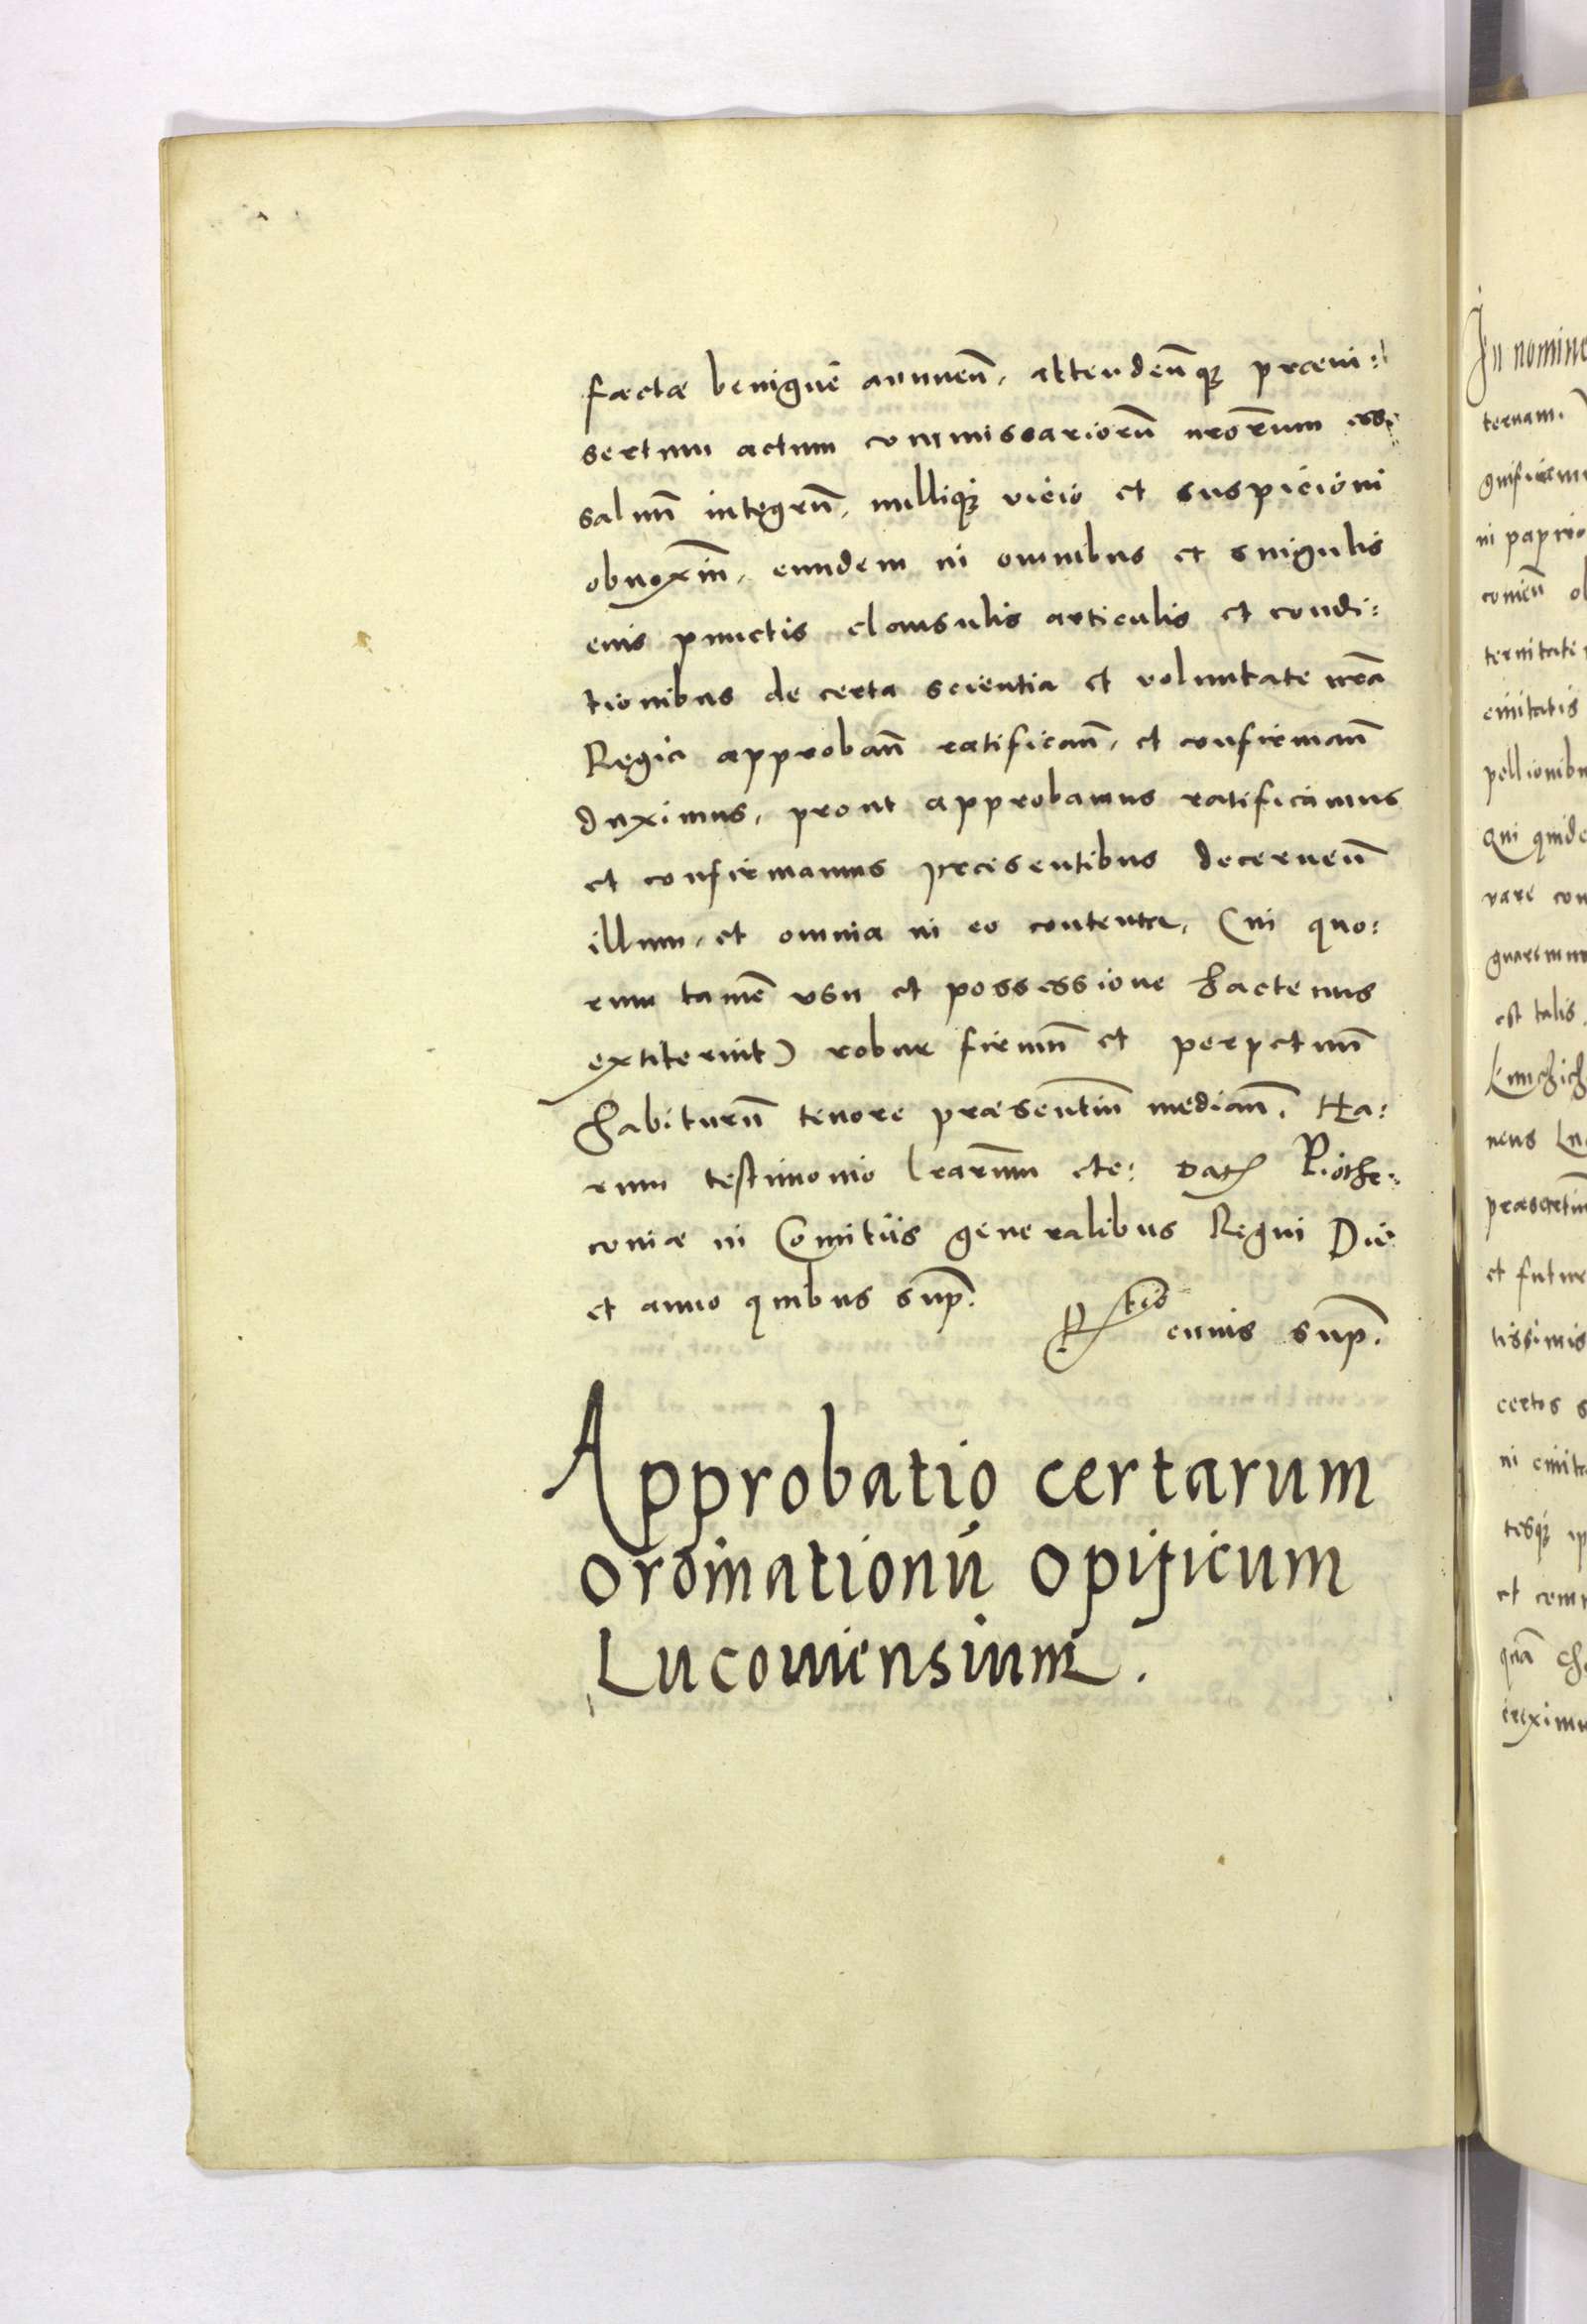 factæ benignè annuen̄, attendeńq; præin:
sertum actum commissariorū nr̄orum esse
saluū integrū, nulliq; vicio et suspicioni
obnoxiū, eundem in omnibus et singulis
eius punctis clausulis articulis et condi:
tionibus de certa scientia et voluntate nr̄a
Regia approban̄ ratifican̄, et confirman̄
duximus, prout approbamus ratificamus
et confirmamus præsentibus decernen̄
illum, et omnia in eo contenta, (in quo:
rum tamē vsu et possessione hactenus
extiterint) robur firmū et perpetuū
habiturū tenore præsentiū median̄. Ha:
rum testimonio lr̄arum etc: Dat Piothr:
coniæ in Comitiis generalibus Regni Die
et anno quibus sup̄.
R̄tio cuius sup̄.
Approbatio certarum
ordinationū opificum
Lucouiensium.
In nomine
ternam.
ni papirio
ternitate
ciuitatis
pellionibu
Qui quide
vare con
est talis.
et futur
tissimis
certos s
in ciuita